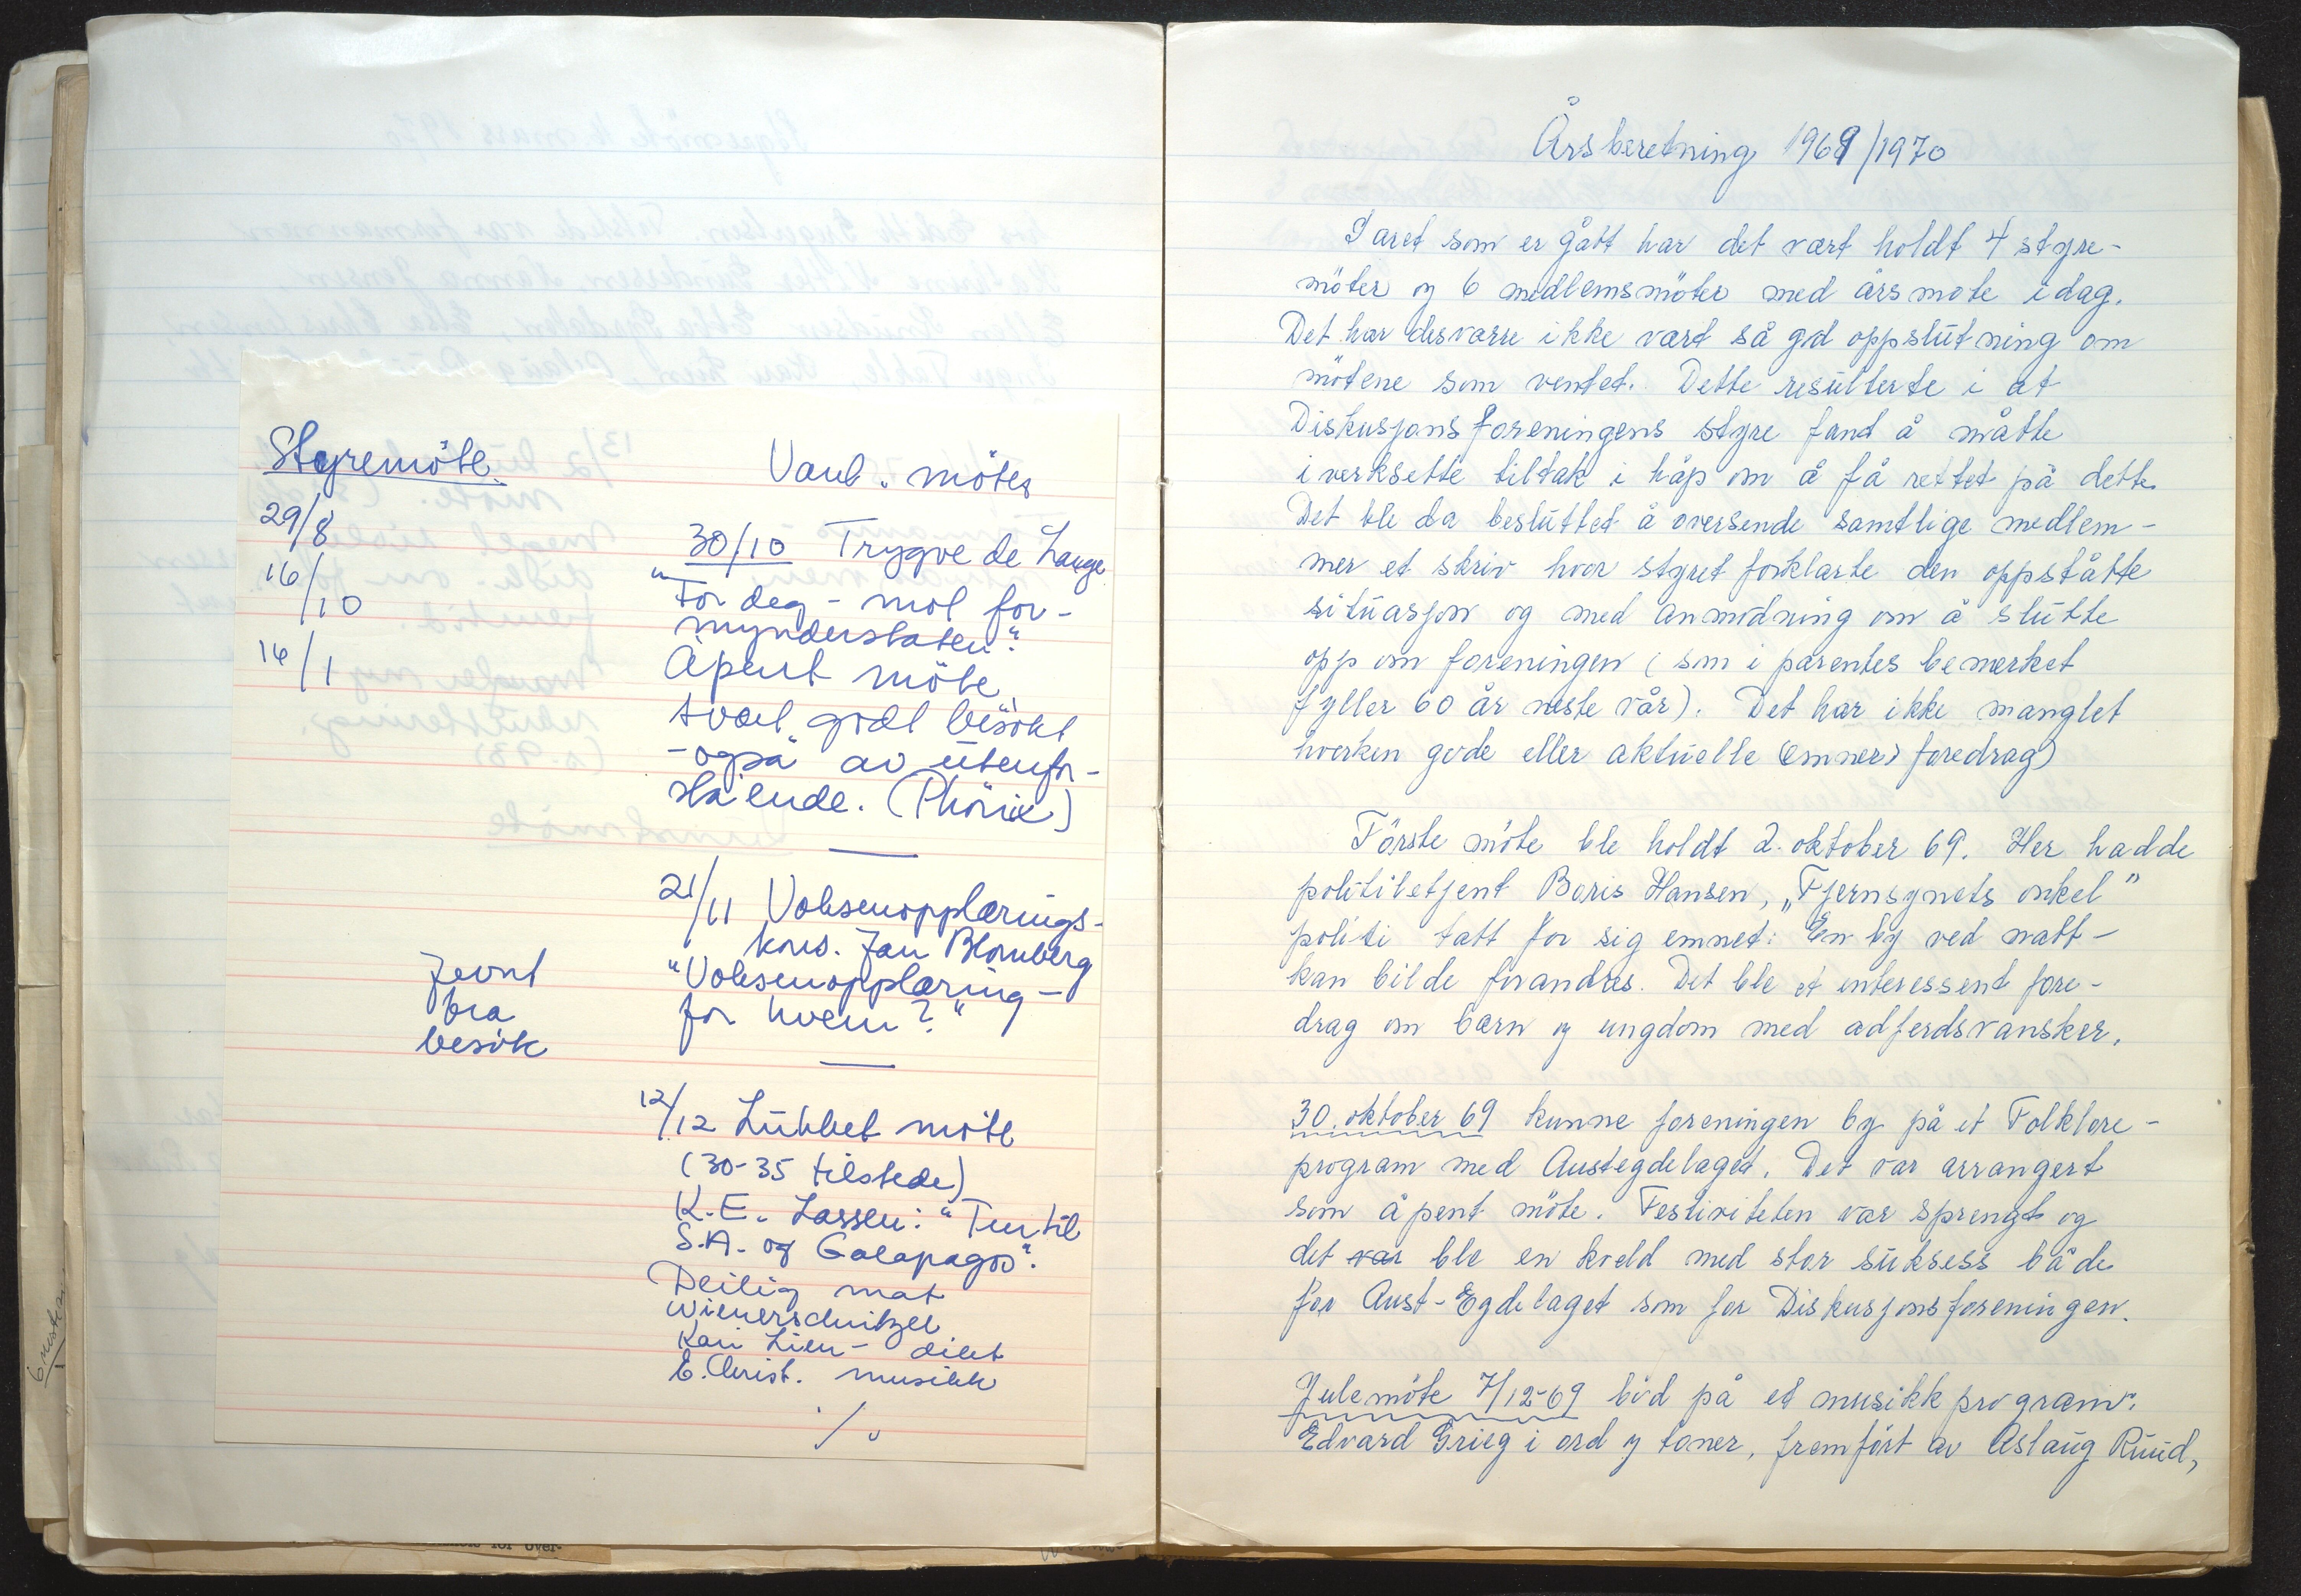 Styremöte
29/8
16/10
16/1
Vanl. möter
30/10 Trygve de Lange
"For deg - mot for-
mynderstaten".
Åpent möte,
svært godt besökt
- også av utenfor-
stående. (Phönix)
21/11 Voksenopplærings-
kons. Jan Blomberg
"Voksenopplæring -
for hvem?"
Jevnt
bra
besök
12/12 Lukket möte
(30-35 tilstede)
K.E. Lassen: "Tur til
S.A. og Galapagos".
Deilig mat
Wienerschnitzel
Kari Lien - dikt
E. Christ. musikk
./.
Årsberetning 1969/1970
I året som er gått har det vært holdt 4 styre-
möter og 6 medlemsmöter med årsmöte idag.
Det har desværre ikke vært så god oppslutning om
mötene som ventet. Dette resulterte i at
Diskusjonsforeningens styre fand å måtte
iverksette tiltak i håp om å få rettet på dette.
Det ble da besluttet å oversende samtlige medlem-
mer et skriv hvor styret forklarte den oppståtte
situasjon og med anmodning om å slutte
opp om foreningen (som i parentes bemerket
fyller 60 år neste vår). Det har ikke manglet
hverken gode eller aktuelle (emner) foredrag)
Förste möte ble holdt 2. oktober 69. Her hadde
politibetjent Boris Hansen, „Fjernsynets onkel"
politi tatt for sig emnet: En by ved natt -
kan bilde forandres. Det ble et interessent fore-
drag om barn og ungdom med adferdsvansker.
30. oktober 69 kunne foreningen by på et Folklore-
program med Austegdelaget. Det var arrangert
som åpent möte. Festiviteten var sprengt og
det var ble en kveld med stor suksess både
for Aust-Egdelaget som for Diskusjonsforeningen.
Julemöte 7/12-69 böd på et musikkprogram.
Edvard Grieg i ord og toner, fremfört av Aslaug Ruud,